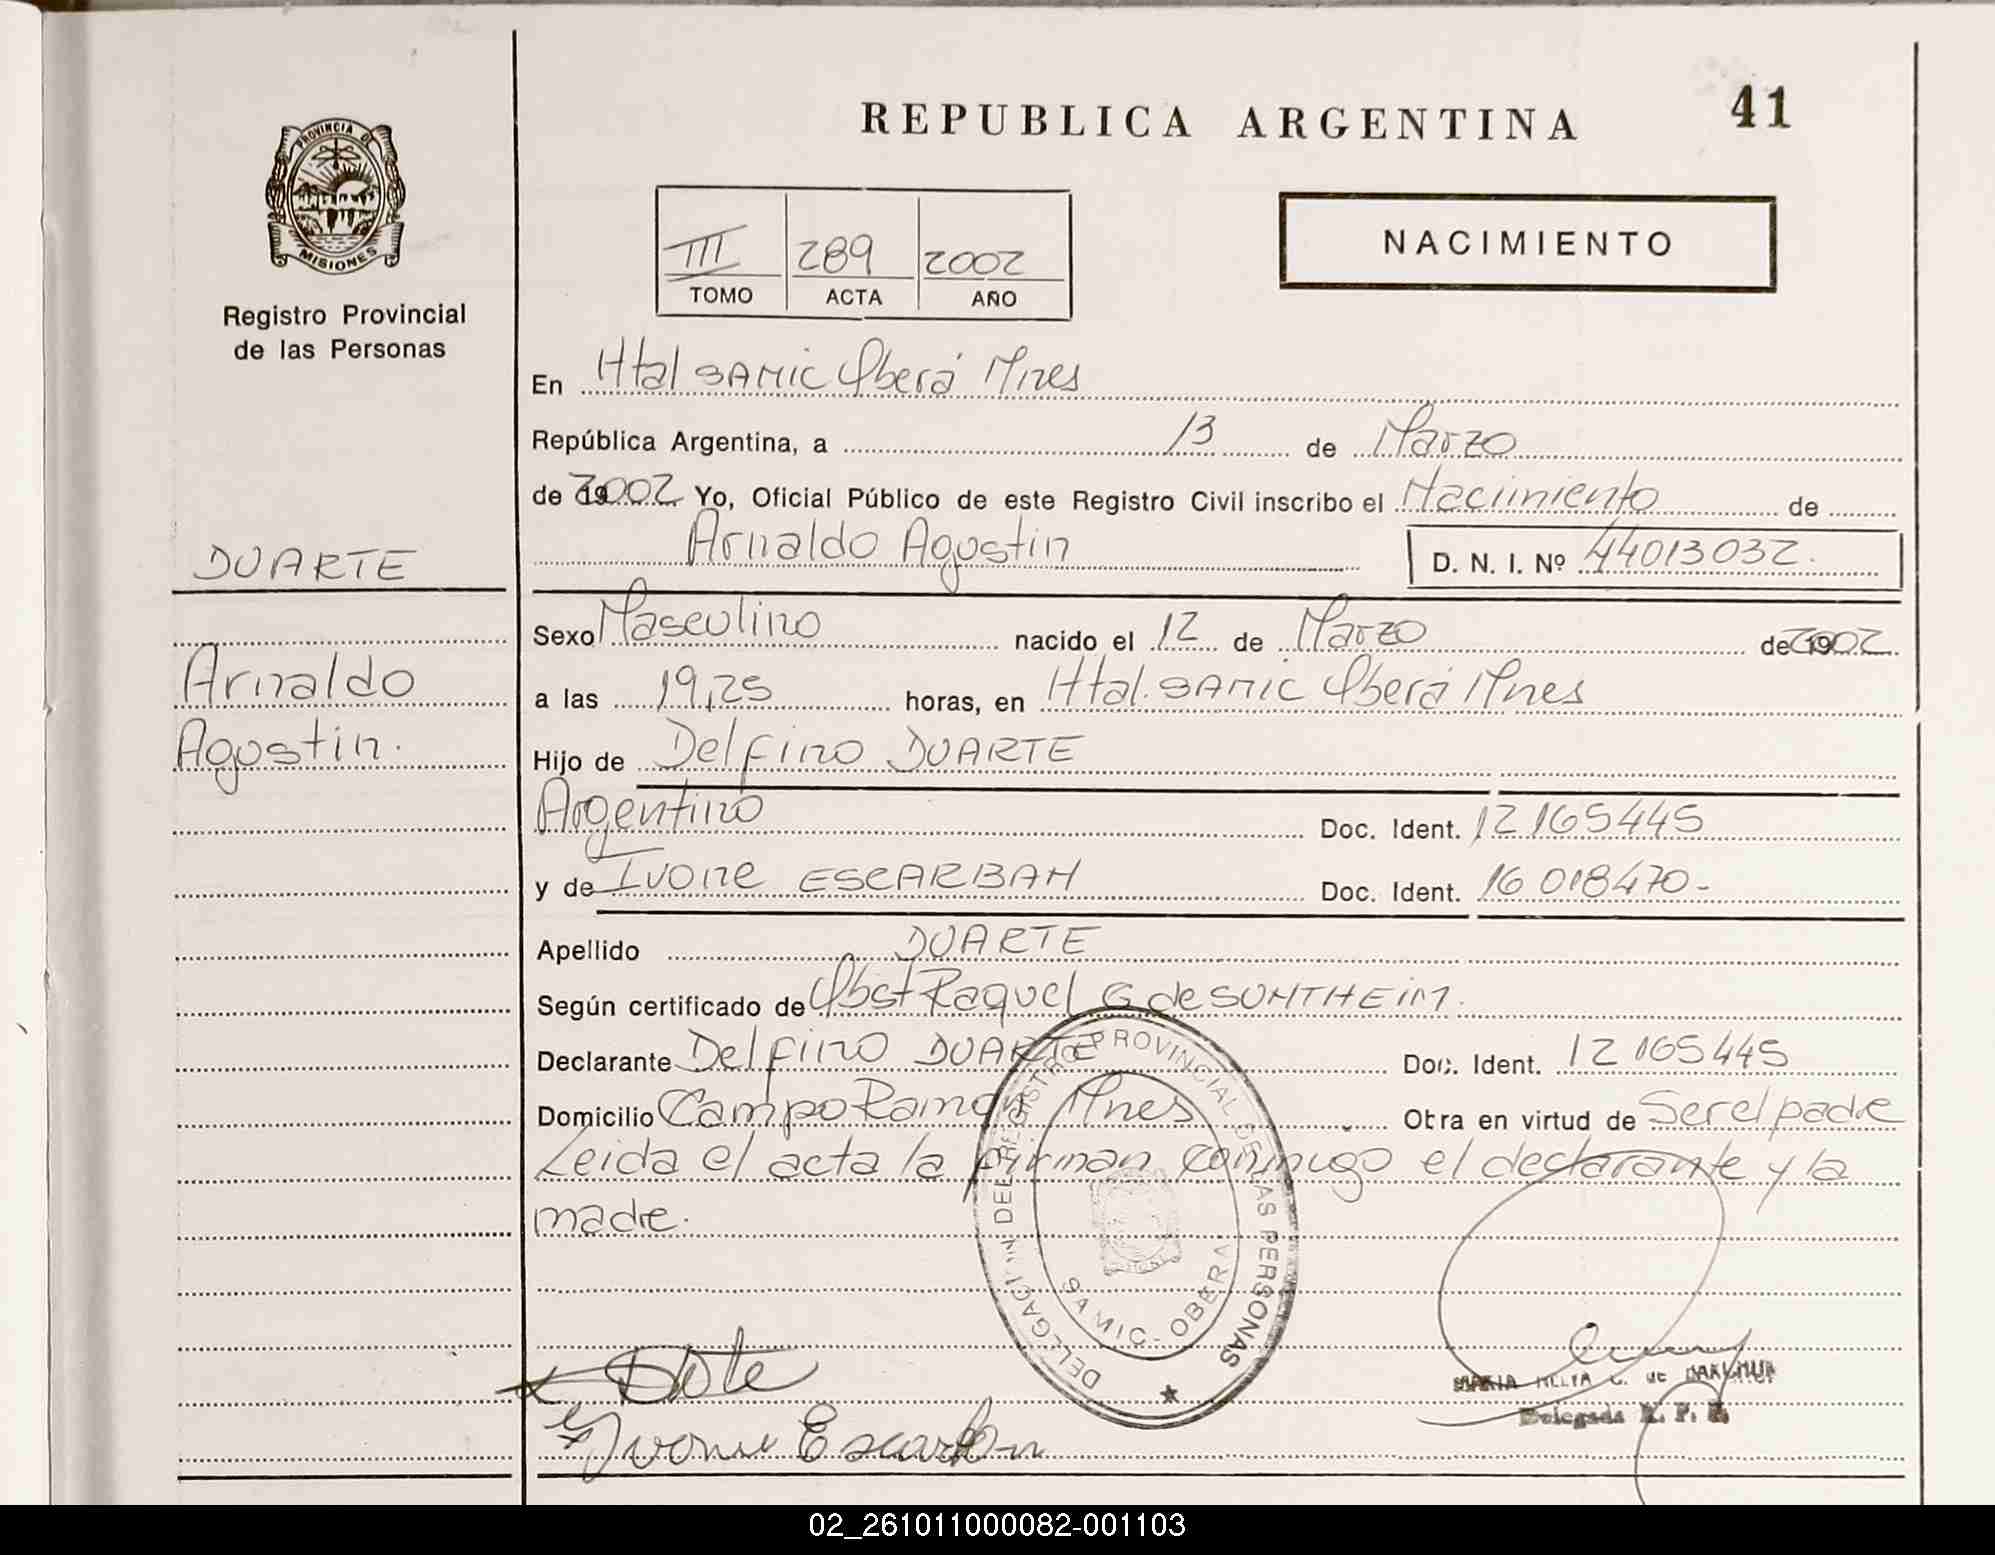 REPUBLICA ARGENTINA
41
PROVINCIA DE
MISIONES
Registro Provincial
de las Personas
III 289 2002
TOMO ACTA AÑO
NACIMIENTO
En Htal SAMIC Oberá Mnes
República Argentina, a 13 de Marzo
de 2002 Yo, Oficial Público de este Registro Civil inscribo el Nacimiento de
Arnaldo Agustin D. N. I. Nº 44013032.
DUARTE
Arnaldo
Agustin.
Sexo Masculino nacido el 12 de Marzo de 2002
a las 19,25 horas, en Htal. SAMIC Oberá Mnes
Hijo de Delfino DUARTE
Argentino Doc. Ident. 12165445
y de Ivone ESCARBAN Doc. Ident. 16018470-
Apellido DUARTE
Según certificado de Obst Raquel G de SONTHEIM.
Declarante Delfino DUARTE Doc. Ident. 12165445
Domicilio Campo Ramon Mnes Obra en virtud de Ser el padre
Leida el acta la firman conmigo el declarante y la
madre.
DELEGACION DEL REGISTRO PROVINCIAL DE LAS PERSONAS
SAMIC - OBERA
Ivone Escarban
MARIA C. de
Delegada R. P. P.
02_261011000082-001103